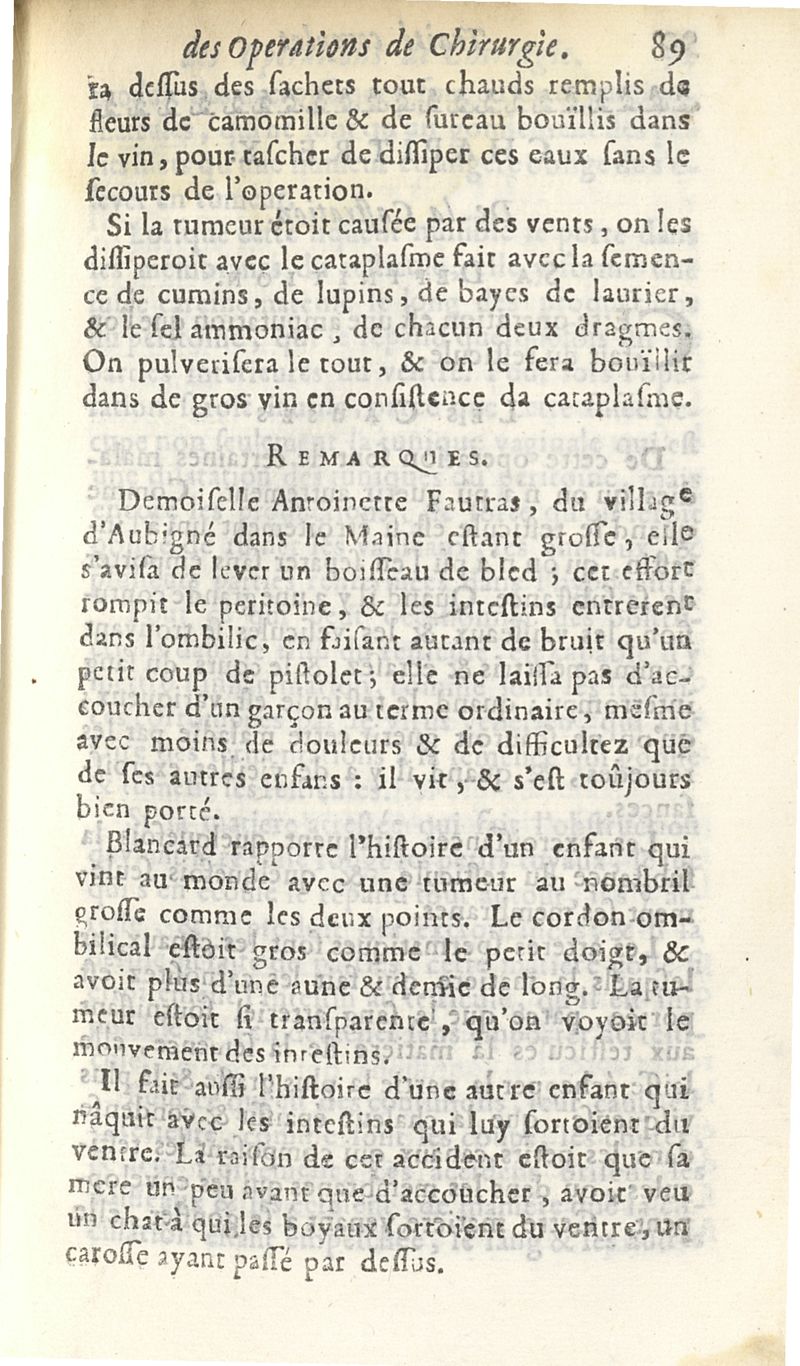 des Operations de Chirurgie. 89
ra dessus des sachets tout chauds remplis de
fleurs de camomille & de sureau bouïllis dans
le vin, pour tascher de dissiper ces eaux sans le
secours de l'operation.
Si la tumeur étoit causée par des vents, on les
dissiperoit avec le cataplasme fait avec la semen-
ce de cumins, de lupins, de bayes de laurier,
& le sel ammoniac, de chacun deux dragmes.
On pulverisera le tout, & on le fera bouïllir
dans de gros vin en consistence da cataplasme.
REMARQUES.
Demoiselle Antoinette Fautras, du village
d'Aubigné dans le Maine estant grosse, elle
s'avisa de lever un boisseau de bled ; cet effort
rompit le peritoine, & les intestins entrerent
dans l'ombilic, en faisant autant de bruit qu'un
petit coup de pistolet; elle ne laissa pas d'ac-
coucher d'un garçon au terme ordinaire, mesme
avec moins de douleurs & de difficultez que
de ses autres enfans : il vit, & s'est toûjours
bien porté.
Blancard rapporte l'histoire d'un enfant qui
vint au monde avec une tumeur au nombril
grosse comme les deux points. Le cordon om-
bilical estoit gros comme le petit doigt, &
avoit plus d'une aune & demie de long. La tu-
meur estoit si transparente, qu'on voyoit le
mouvement des intestins.
Il fait aussi l'histoire d'une autre enfant qui
nâquit avec les intestins qui luy sortoient du
ventre. La raison de cet accident estoit que sa
mere un peu avant que d'accoucher, avoit veu
un chat à qui les boyaux sortoient du ventre, un
carosse ayant passé par dessus.